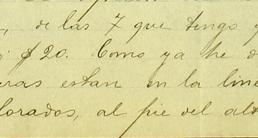 , de las 7 que tengo y
$20. Como ya he d
ras estan en la line
lorados, al pie del alt